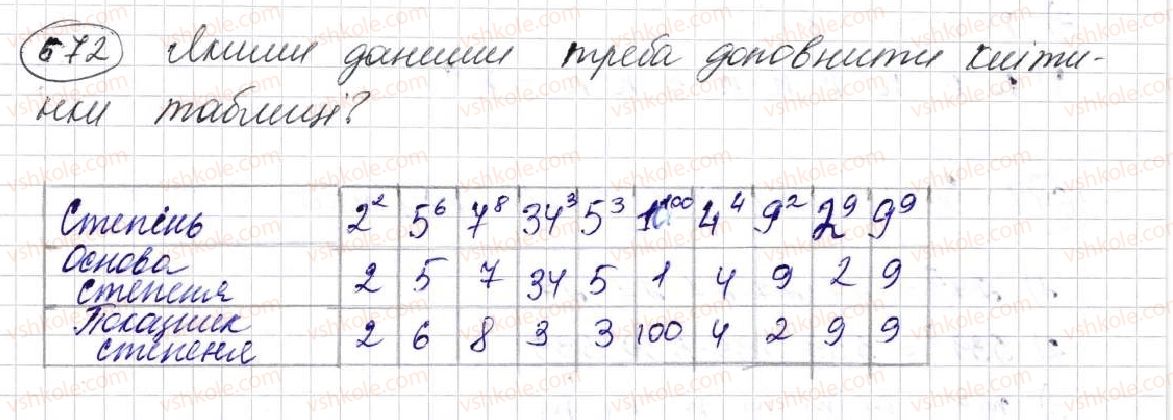 572 Якими даними треба доповнити кліти-
нки таблиці?
Степінь 2² 5⁶ 7⁸ 34³ 5³ 1¹⁰⁰ 4⁴ 9² 2⁹ 9⁹
Основа степеня 2 5 7 34 5 1 4 9 2 9
Показник степеня 2 6 8 3 3 100 4 2 9 9